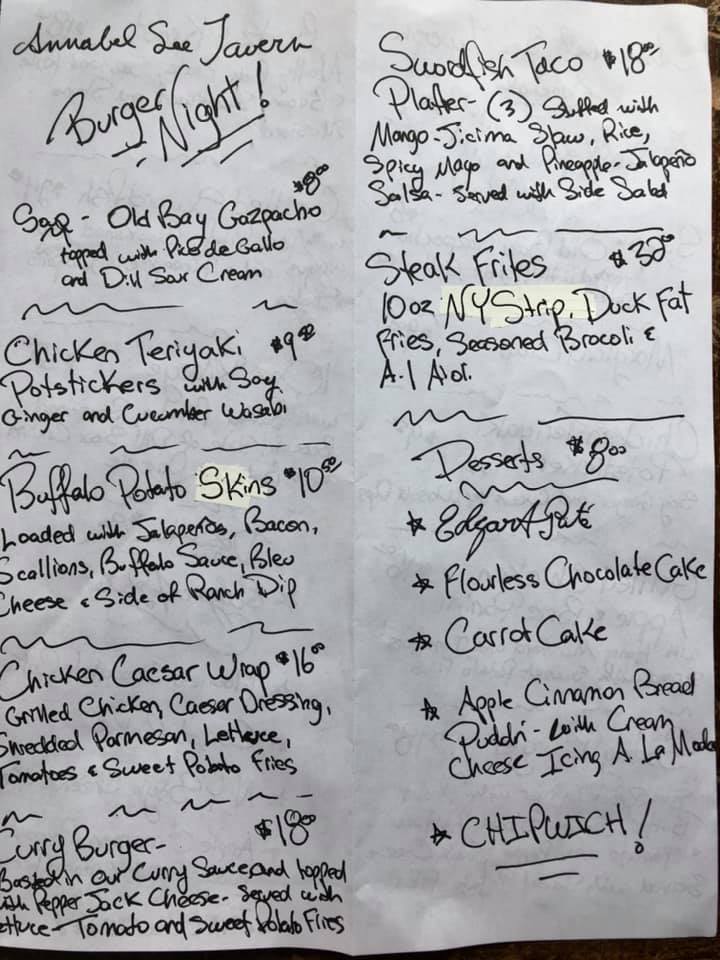 Annabel Lee Tavern
Burger Night!
$8.00
Soup - Old Bay Gazpacho
topped with Pico de Gallo
and Dill Sour Cream
Chicken Teriyaki $9.50
Potstickers with Soy
Ginger and Cucumber Wasabi
Buffalo Potato Skins $10.50
Loaded with Jalapeños, Bacon,
Scallions, Buffalo Sauce, Bleu
Cheese & Side of Ranch Dip
Chicken Caesar Wrap $16.00
Grilled Chicken, Caesar Dressing,
Shredded Parmesan, Lettuce,
Tomatoes & Sweet Potato Fries
Curry Burger- $18.00
Basted in our Curry Sauce and topped
with Pepper Jack Cheese- Served with
Lettuce- Tomato and Sweet Potato Fries
Swordfish Taco $18.00
Platter- (3) Stuffed with
Mango-Jicima Slaw, Rice,
Spicy Mayo and Pineapple-Jalapeño
Salsa- Served with Side Salad
Steak Frites $32.00
10oz NY Strip, Duck Fat
Fries, Seasoned Brocoli &
A.1
Desserts $8.00
Flourless Chocolate Cake
Carrot Cake
Apple Cinnamon Bread
Puddin- with Cream
Cheese Icing A La Mode
CHIPWICH!